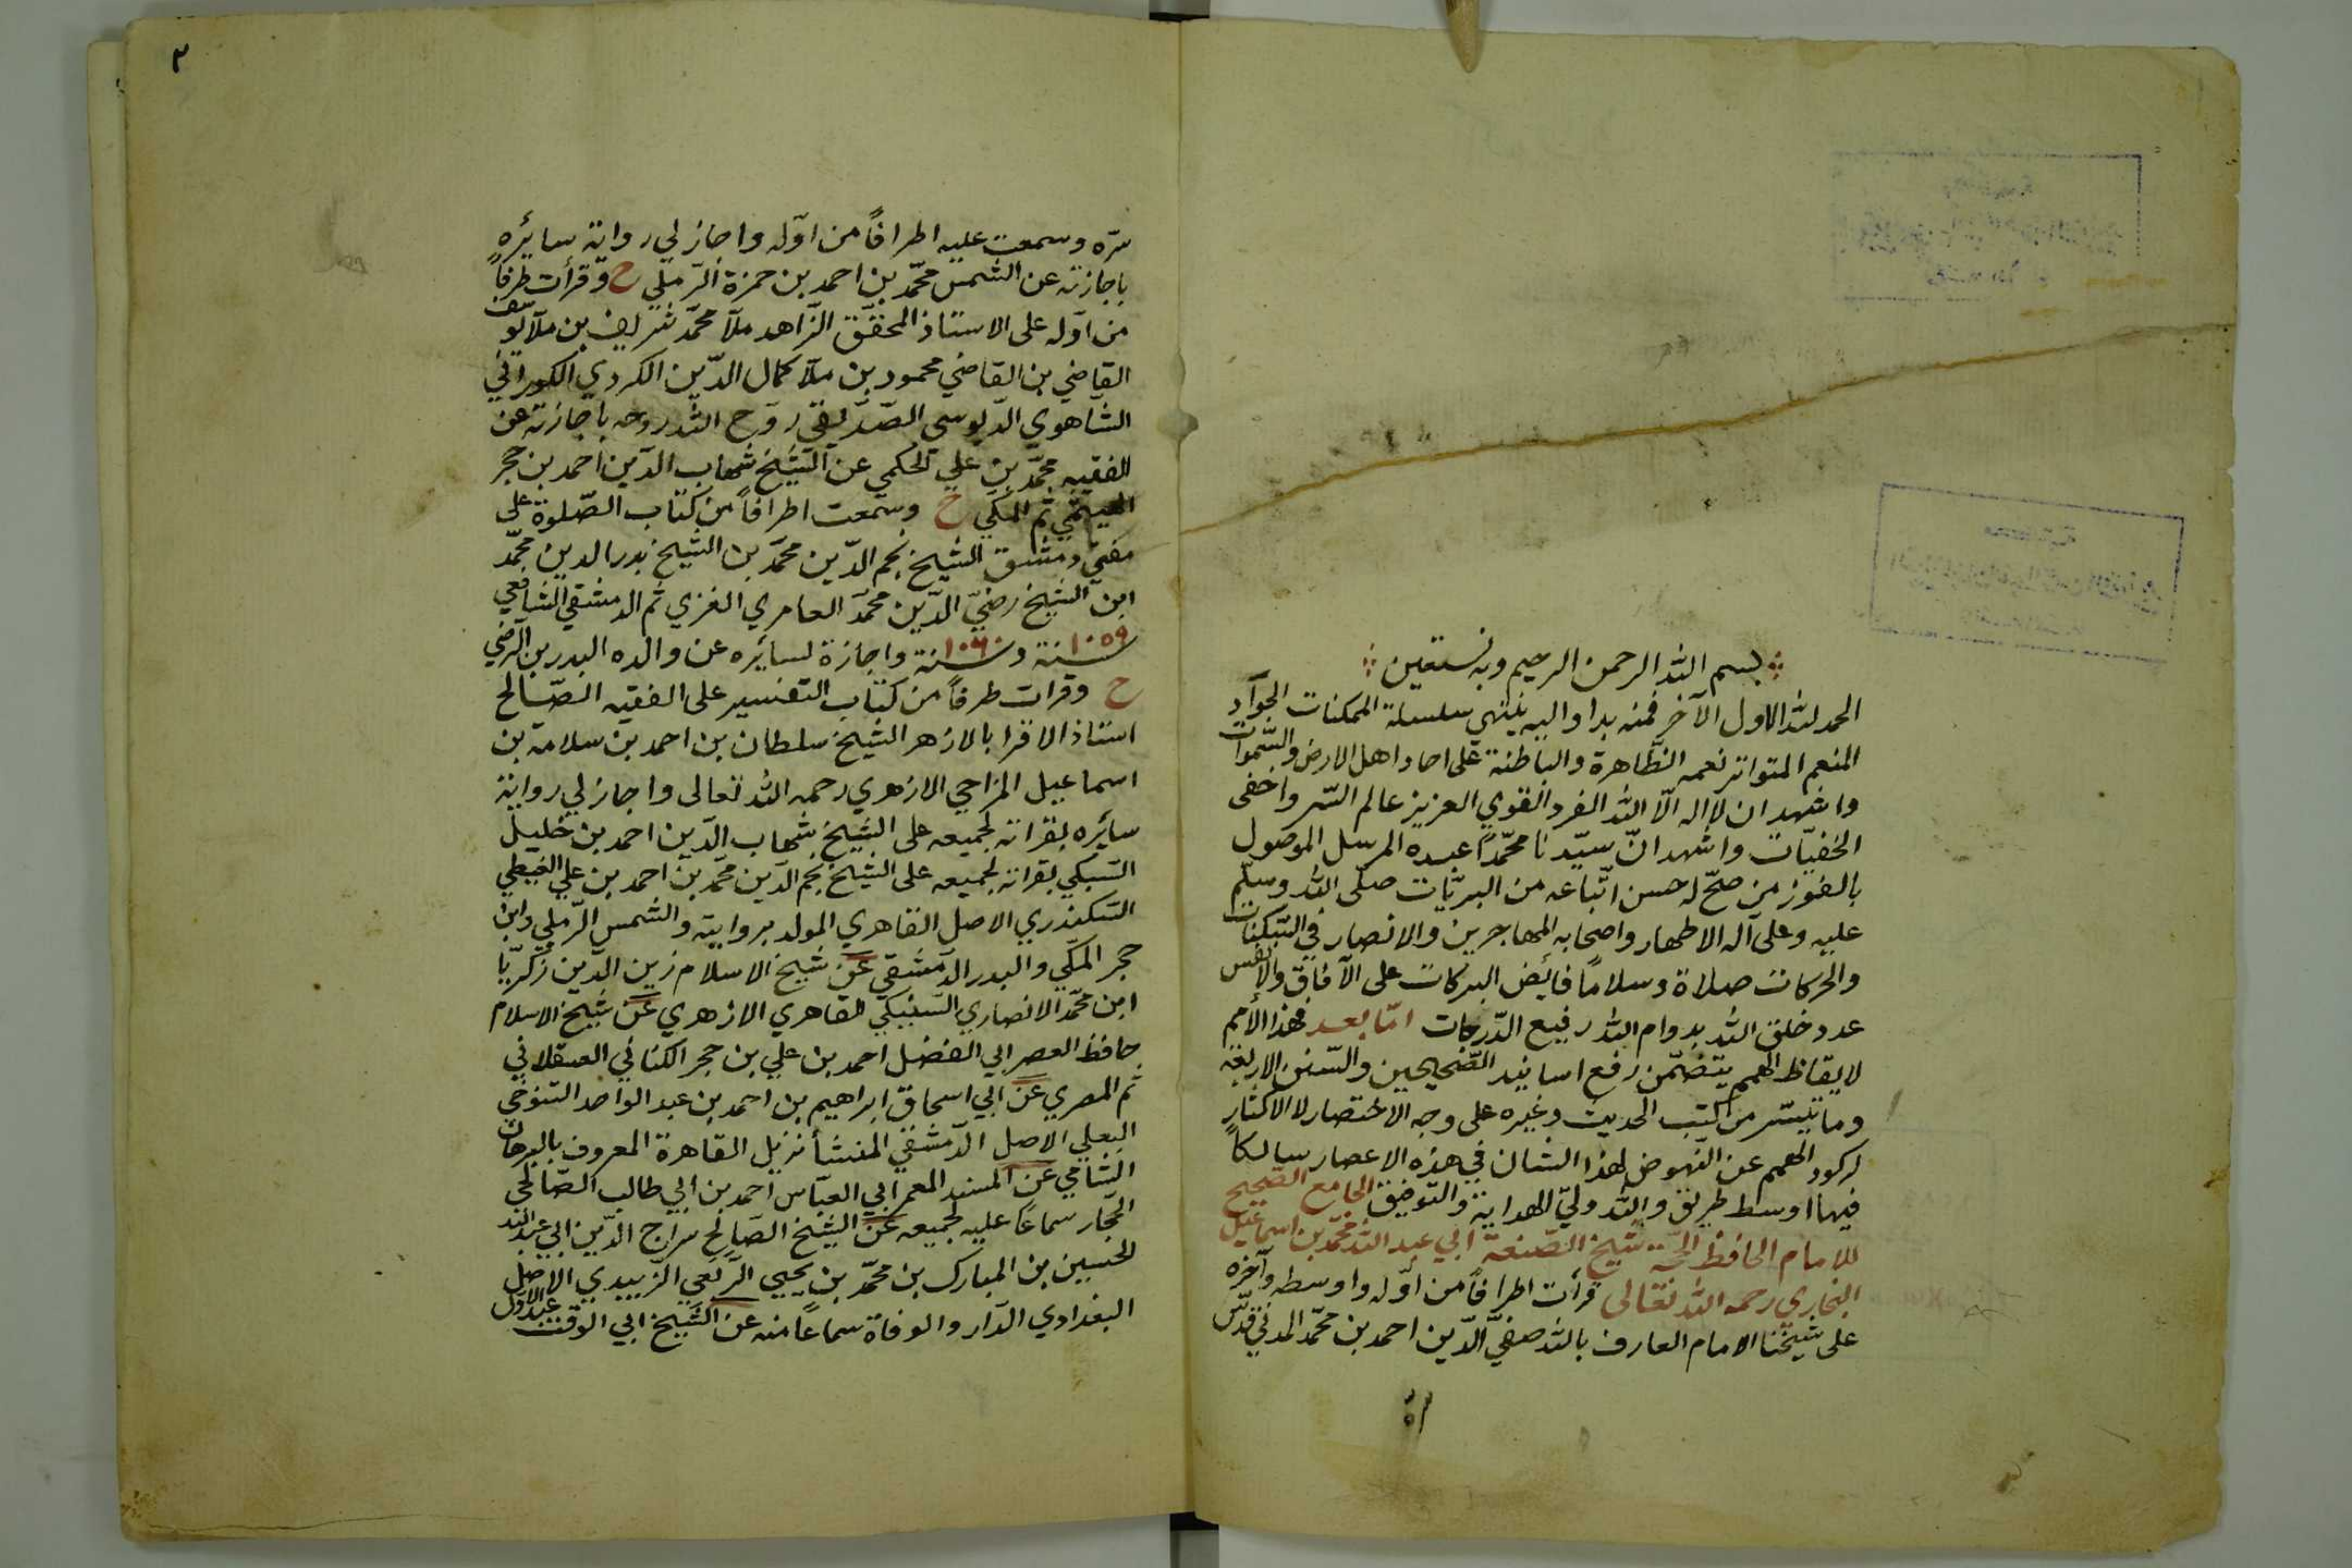 بسم الله الرحمن الرحيم وبه نستعين
الحمد لله الاول الآخر فمنه بدا واليه ينتهي سلسلة الممكنات الجواد
المنعم المتواتر نعمه الظاهرة والباطنة على احاد اهل الارض والسموات
واشهد ان لا اله الّا الله الفرد القوي العزيز عالم السّر واخفى
الخفيّات واشهد انّ سيّدنا محمّداً عبده المرسل الموصول
بالفوز من صحّ له حسن اتّباعه من البريّات صلّى الله وسلّم
عليه وعلى آله الاطهار واصحابه المهاجرين والانصار في السّكنات
والحركات صلاة وسلاماً فائض البركات على الآفاق والانفس
عدد خلق الله بدوام الله رفيع الدّرجات امّا بعد فهذا الأمم
لايقاظ الهمم يتضمّن رفع اسانيد الصّحيحين والسّنن الاربعة
وما تيسّر من كتب الحديث وغيره على وجه الاختصار لا الاكثار
لركود الهمم عن النّهوض لهذا الشان في هذه الاعصار سالكاً
فيها اوسط طريق والله وليّ الهداية والتّوفيق الجامع الصّحيح
للامام الحافظ الحجّة شيخ الصّنعة ابي عبد الله محمّد بن اسماعيل
البخاري رحمه الله تعالى قرأت اطرافاً من اوّله واوسطه وآخره
على شيخنا الامام العارف بالله صفيّ الدّين احمد بن محمّد المدني قدّس
سرّه
٢
سرّه وسمعت عليه اطرافاً من اوّله واجاز لي رواية سائره
باجازته عن الشمس محمّد بن احمد بن حمزة الرّملي ح وقرأت طرفاً
من اوّله على الاستاذ المحقّق الزّاهد ملّا محمّد شريف بن ملّا يوسف
القاضي بن القاضي محمود بن ملّا كمال الدّين الكردي الكوراني
الشاهوي الصّدّيقي روّح الله روحه باجازته عن
الفقيه محمّد بن علي الحكمي عن الشّيخ شهاب الدّين احمد بن حجر
الهيتمي ثم المكّي ح وسمعت اطرافاً من كتاب الصّلوة على
مفتي دمشق الشيخ نجم الدّين محمّد بن الشّيخ بدر الدين محمّد
ابن الشيخ رضيّ الدّين محمّد العامري الغزي ثم الدمشقي الشافعي
سنة ١٠٥٩ وسنة ١٠٦٠ واجازة لسائره عن والده البدر بن الرّضي
ح وقرات طرفاً من كتاب التفسير على الفقيه الصّالح
استاذ الاقرا بالازهر الشيخ سلطان بن احمد بن سلامة بن
اسماعيل المزاحي الازهري رحمه الله تعالى واجاز لي رواية
سائره بقراته لجميعه على الشّيخ شهاب الدّين احمد بن خليل
السّبكي بقراته لجميعه على الشيخ نجم الدّين محمّد بن احمد بن علي الغيطي
السّكندري الاصل القاهري المولد بروايته والشمس الرّملي وابن
حجر المكّي والبدر الدّمشقي عن شيخ الاسلام زين الدّين زكريّا
ابن محمّد الانصاري السّنيكي القاهري الازهري عن شيخ الاسلام
حافظ العصر ابي الفضل احمد بن علي بن حجر الكناني العسقلاني
ثم المصري عن ابي اسحاق ابراهيم بن احمد بن عبد الواحد التنوخي
البعلي الاصل الدّمشقي المنشأ نزيل القاهرة المعروف بالبرهان
الشامي عن المسند المعمر ابي العبّاس احمد بن ابي طالب الصّالحي
الحجّار سماعاً عليه لجميعه عن الشّيخ الصّالح سراج الدّين ابي عبد الله
الحسين بن المبارك بن محمّد بن يحيى الرّبعي الزّبيدي الاصل
البغدادي الدّار والوفاة سماعاً منه عن الشّيخ ابي الوقت عبد الاوّل